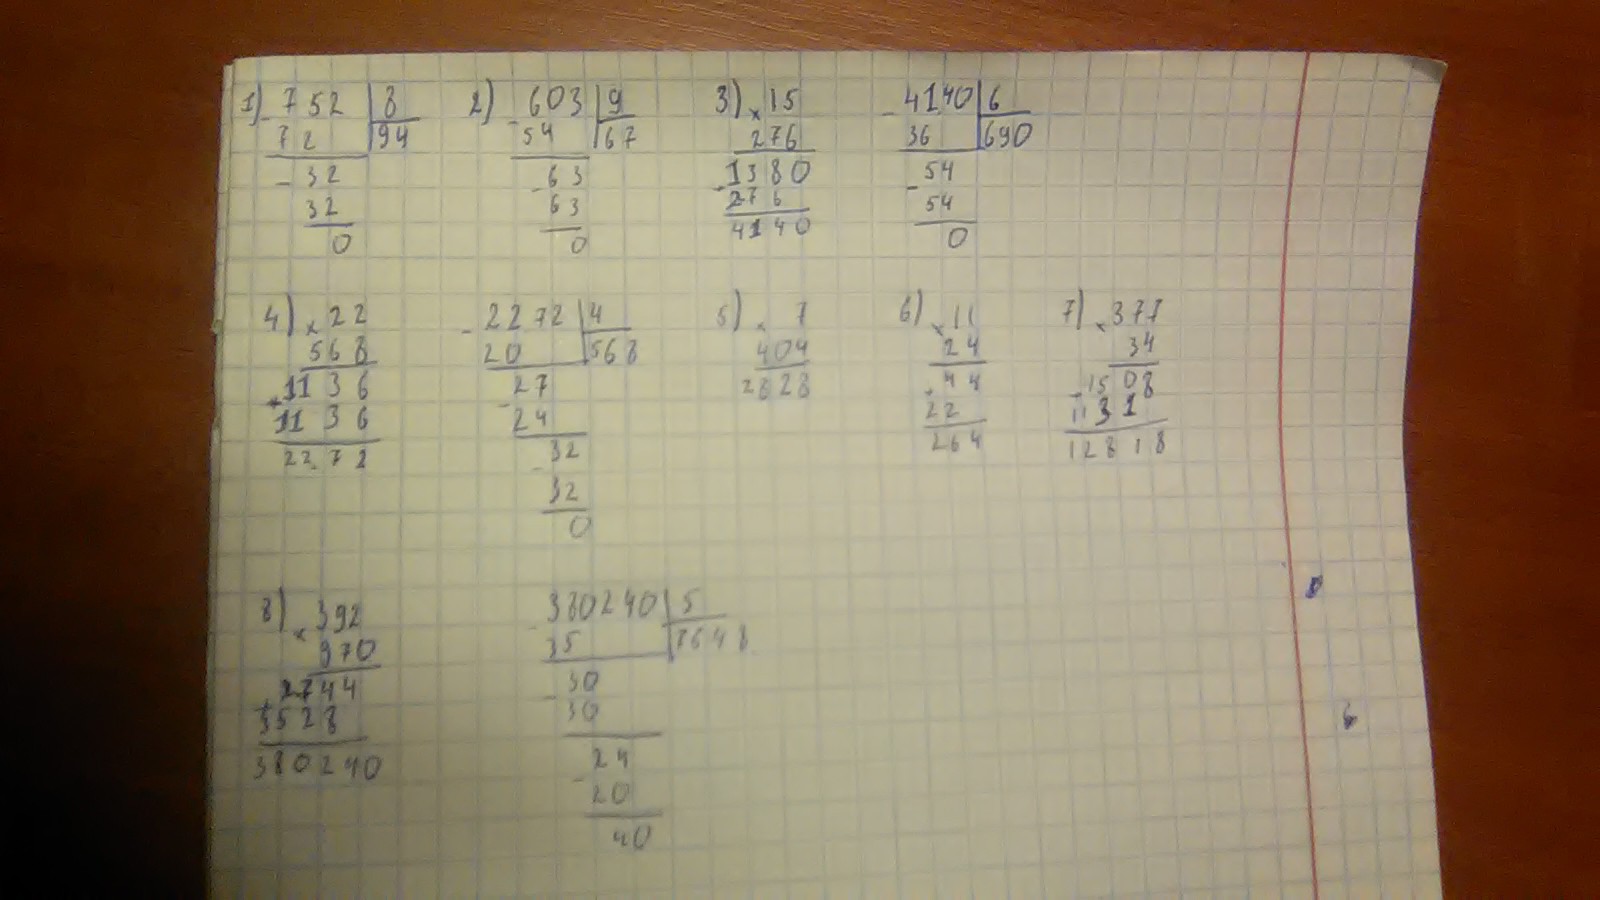 1) - 752 | 8
72 | 94
- 32
32
0
2) - 603 | 9
54 | 67
- 63
63
0
3) x 15
276
1380
276
4140
- 4140 | 6
36 | 690
- 54
54
0
4) x 22
568
+ 1136
1136
2272
- 2272 | 4
20 | 568
- 27
24
- 32
32
0
5) x 7
404
2828
6) x 11
24
+ 44
22
264
7) x 377
34
1508
1131
12818
8) x 392
970
+ 2744
3528
380240
- 380240 | 5
35 | 7648
- 30
30
- 24
20
40